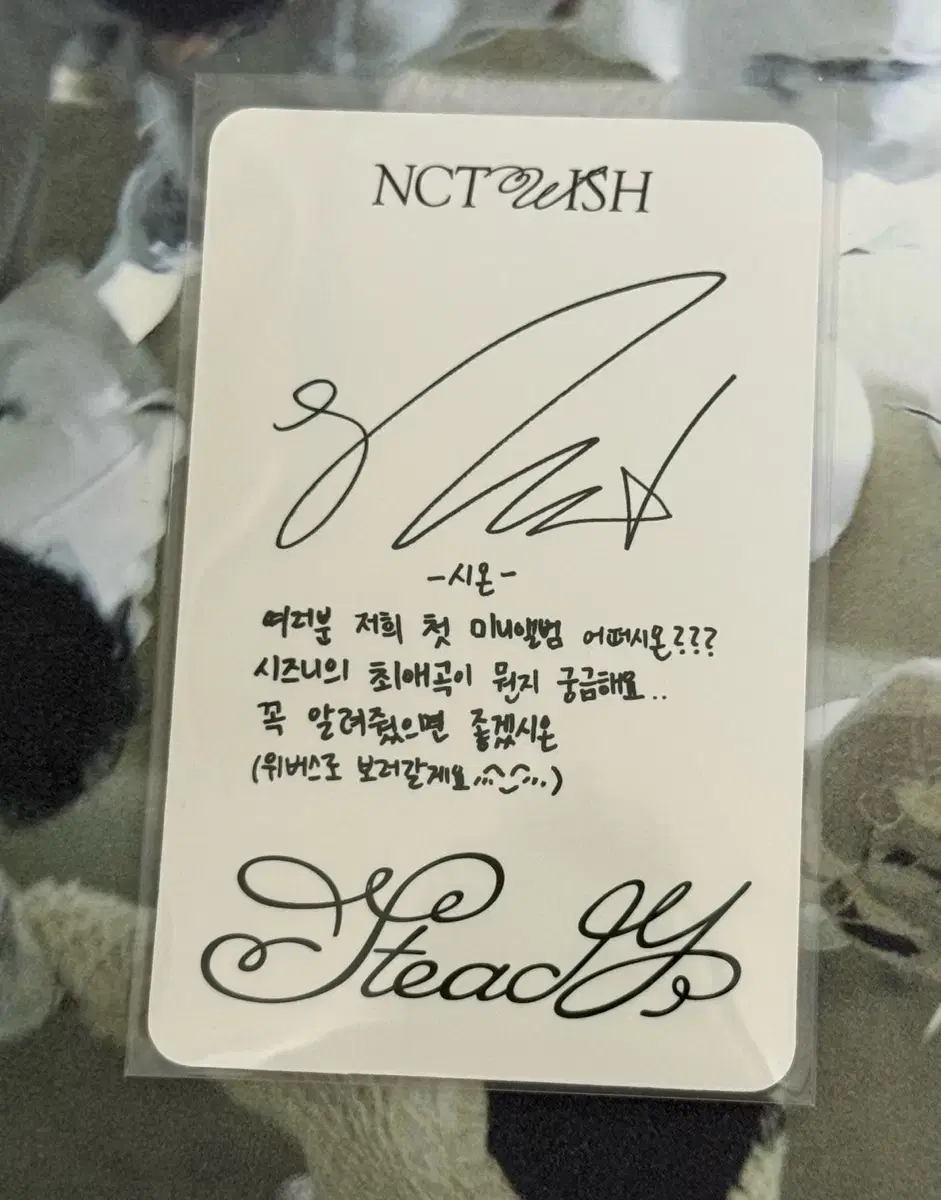 NCT WISH
-시온-
여러분 저희 첫 미니앨범 어떠시온???
시즈니의 최애곡이 뭔지 궁금해요..
꼭 알려줬으면 좋겠시온
(위버스로 보러갈게요,,^^,,,)
Steady